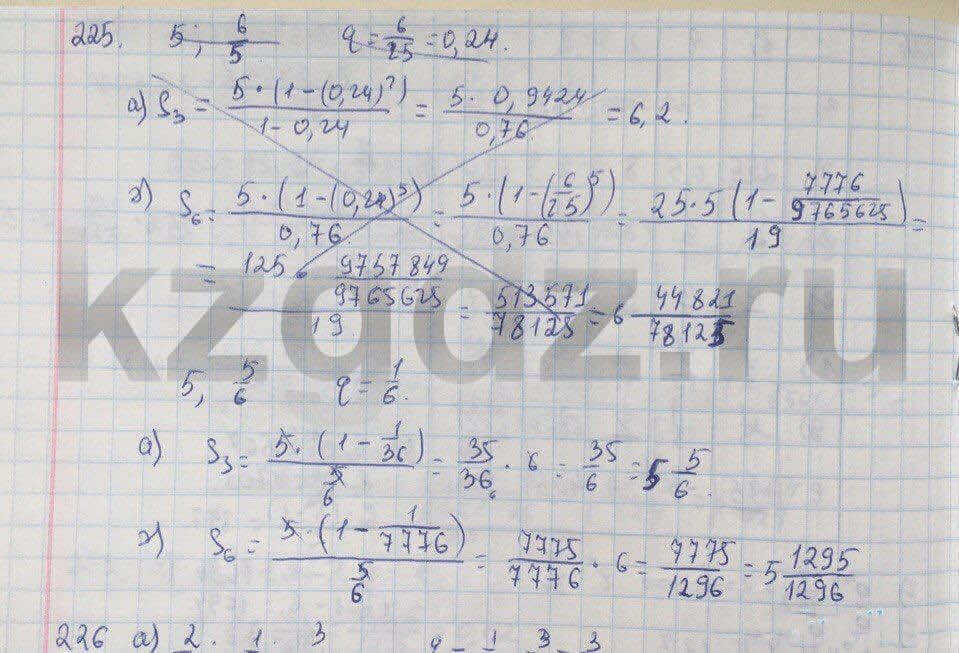 225. 5; 6/5 q = 6/25 = 0,24.
а) S₃ = 5·(1-(0,24)²)/(1-0,24) = 5·0,9424/0,76 = 6,2.
S₆ = 5·(1-(0,24)⁵)/0,76 = 5·(1-(6/25)⁵)/0,76 = 25·5(1-7776/9765625)/19 =
= 125·9757849/9765625/19 = 513571/78125 = 6 44821/78125
kzgdz.ru
5, 5/6 q = 1/6.
а) S₃ = 5·(1-1/36)/(5/6) = 35/36·6 = 35/6 = 5 5/6.
S₆ = 5·(1-1/7776)/(5/6) = 7775/7776·6 = 7775/1296 = 5 1295/1296
226 а) 2. 1. 3